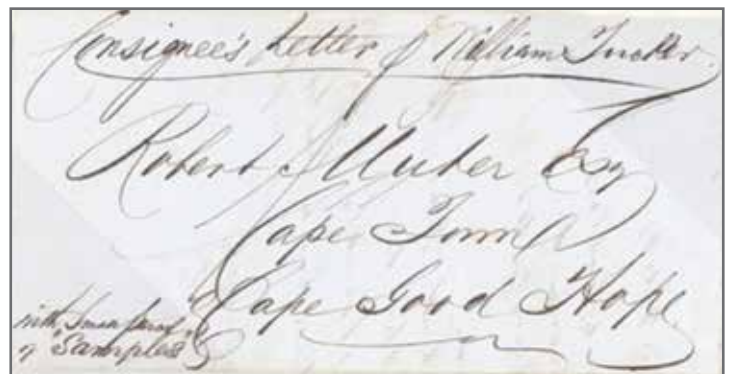 Consignee's Letter p William Tucker
Robert J Esq
Cape Town
Cape Good Hope
with Small parcel
of Samples